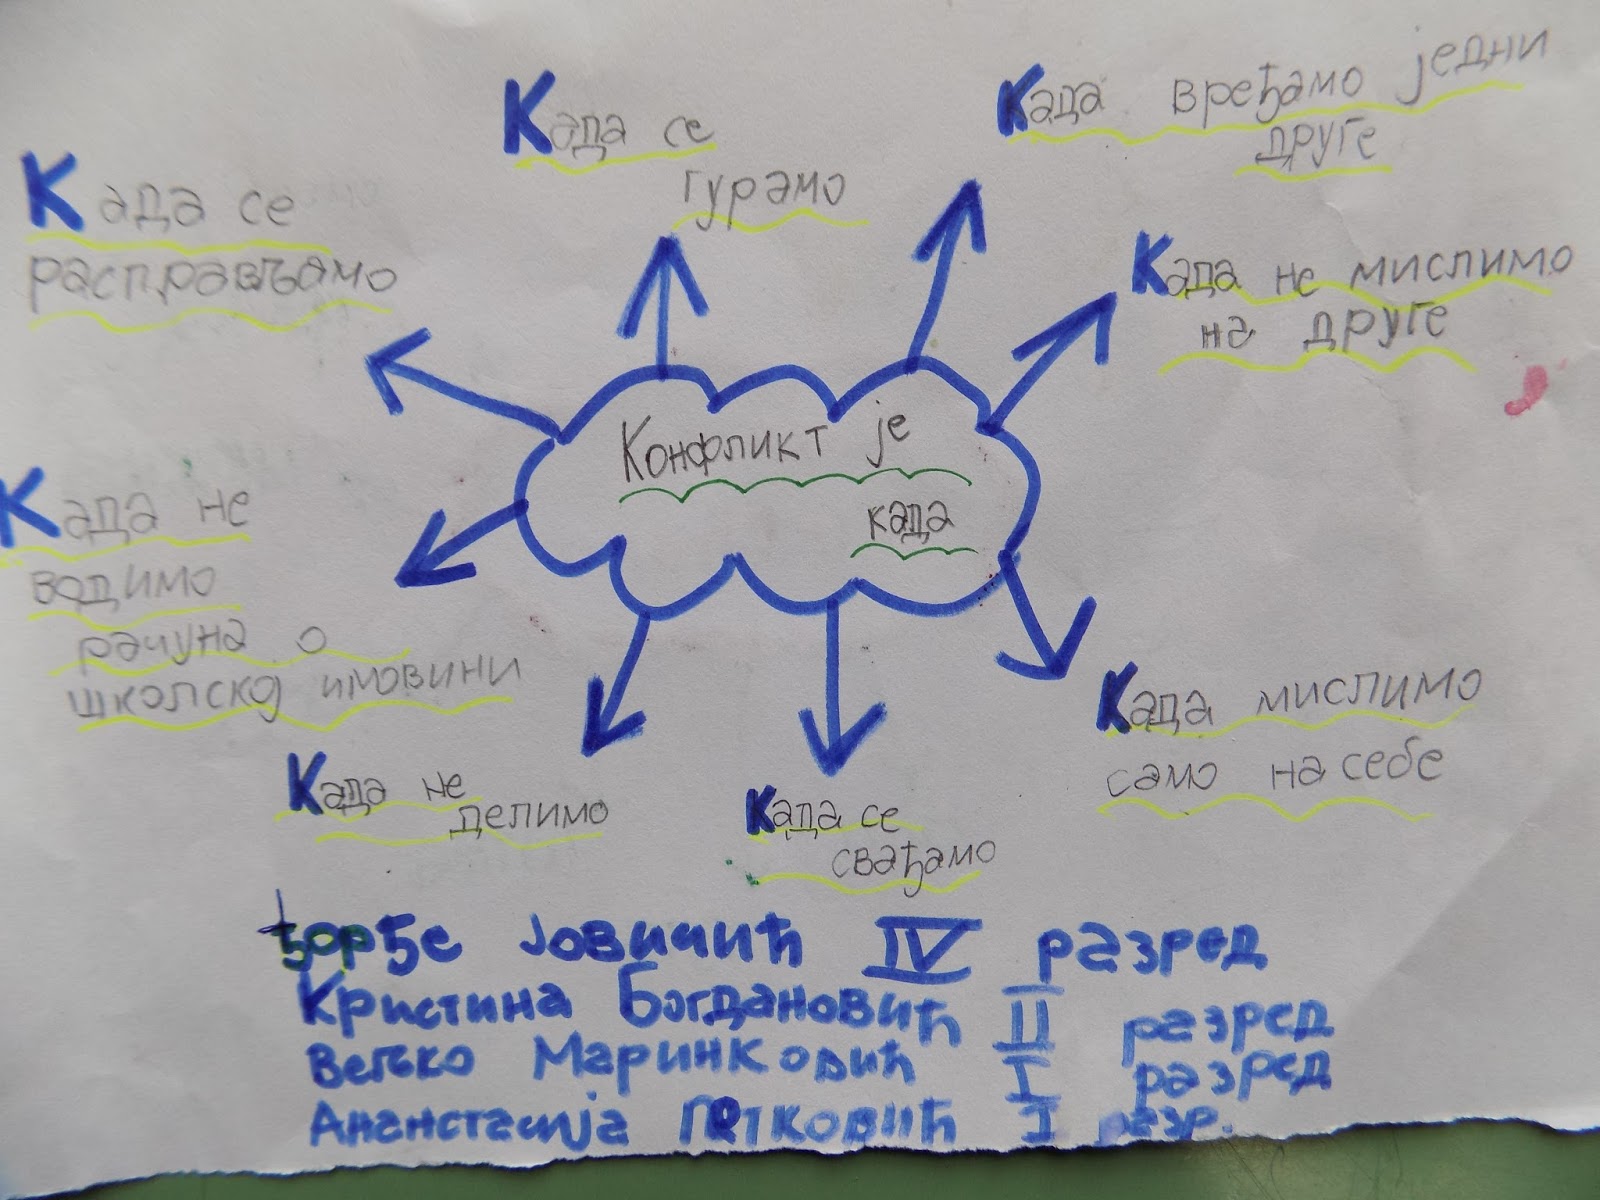 Када се
гурамо
Када вређамо једни
друге
Када се
расправљамо
Када не мислимо
на друге
Конфликт је
када
Када не
водимо
рачуна о
школској имовини
Када мислимо
само на себе
Када не
делимо
Када се
свађамо
Ђорђе Јовичић IV разред
Кристина Богдановић II разред
Вељко Маринковић I разред
Ананстасија Петковић I разр.